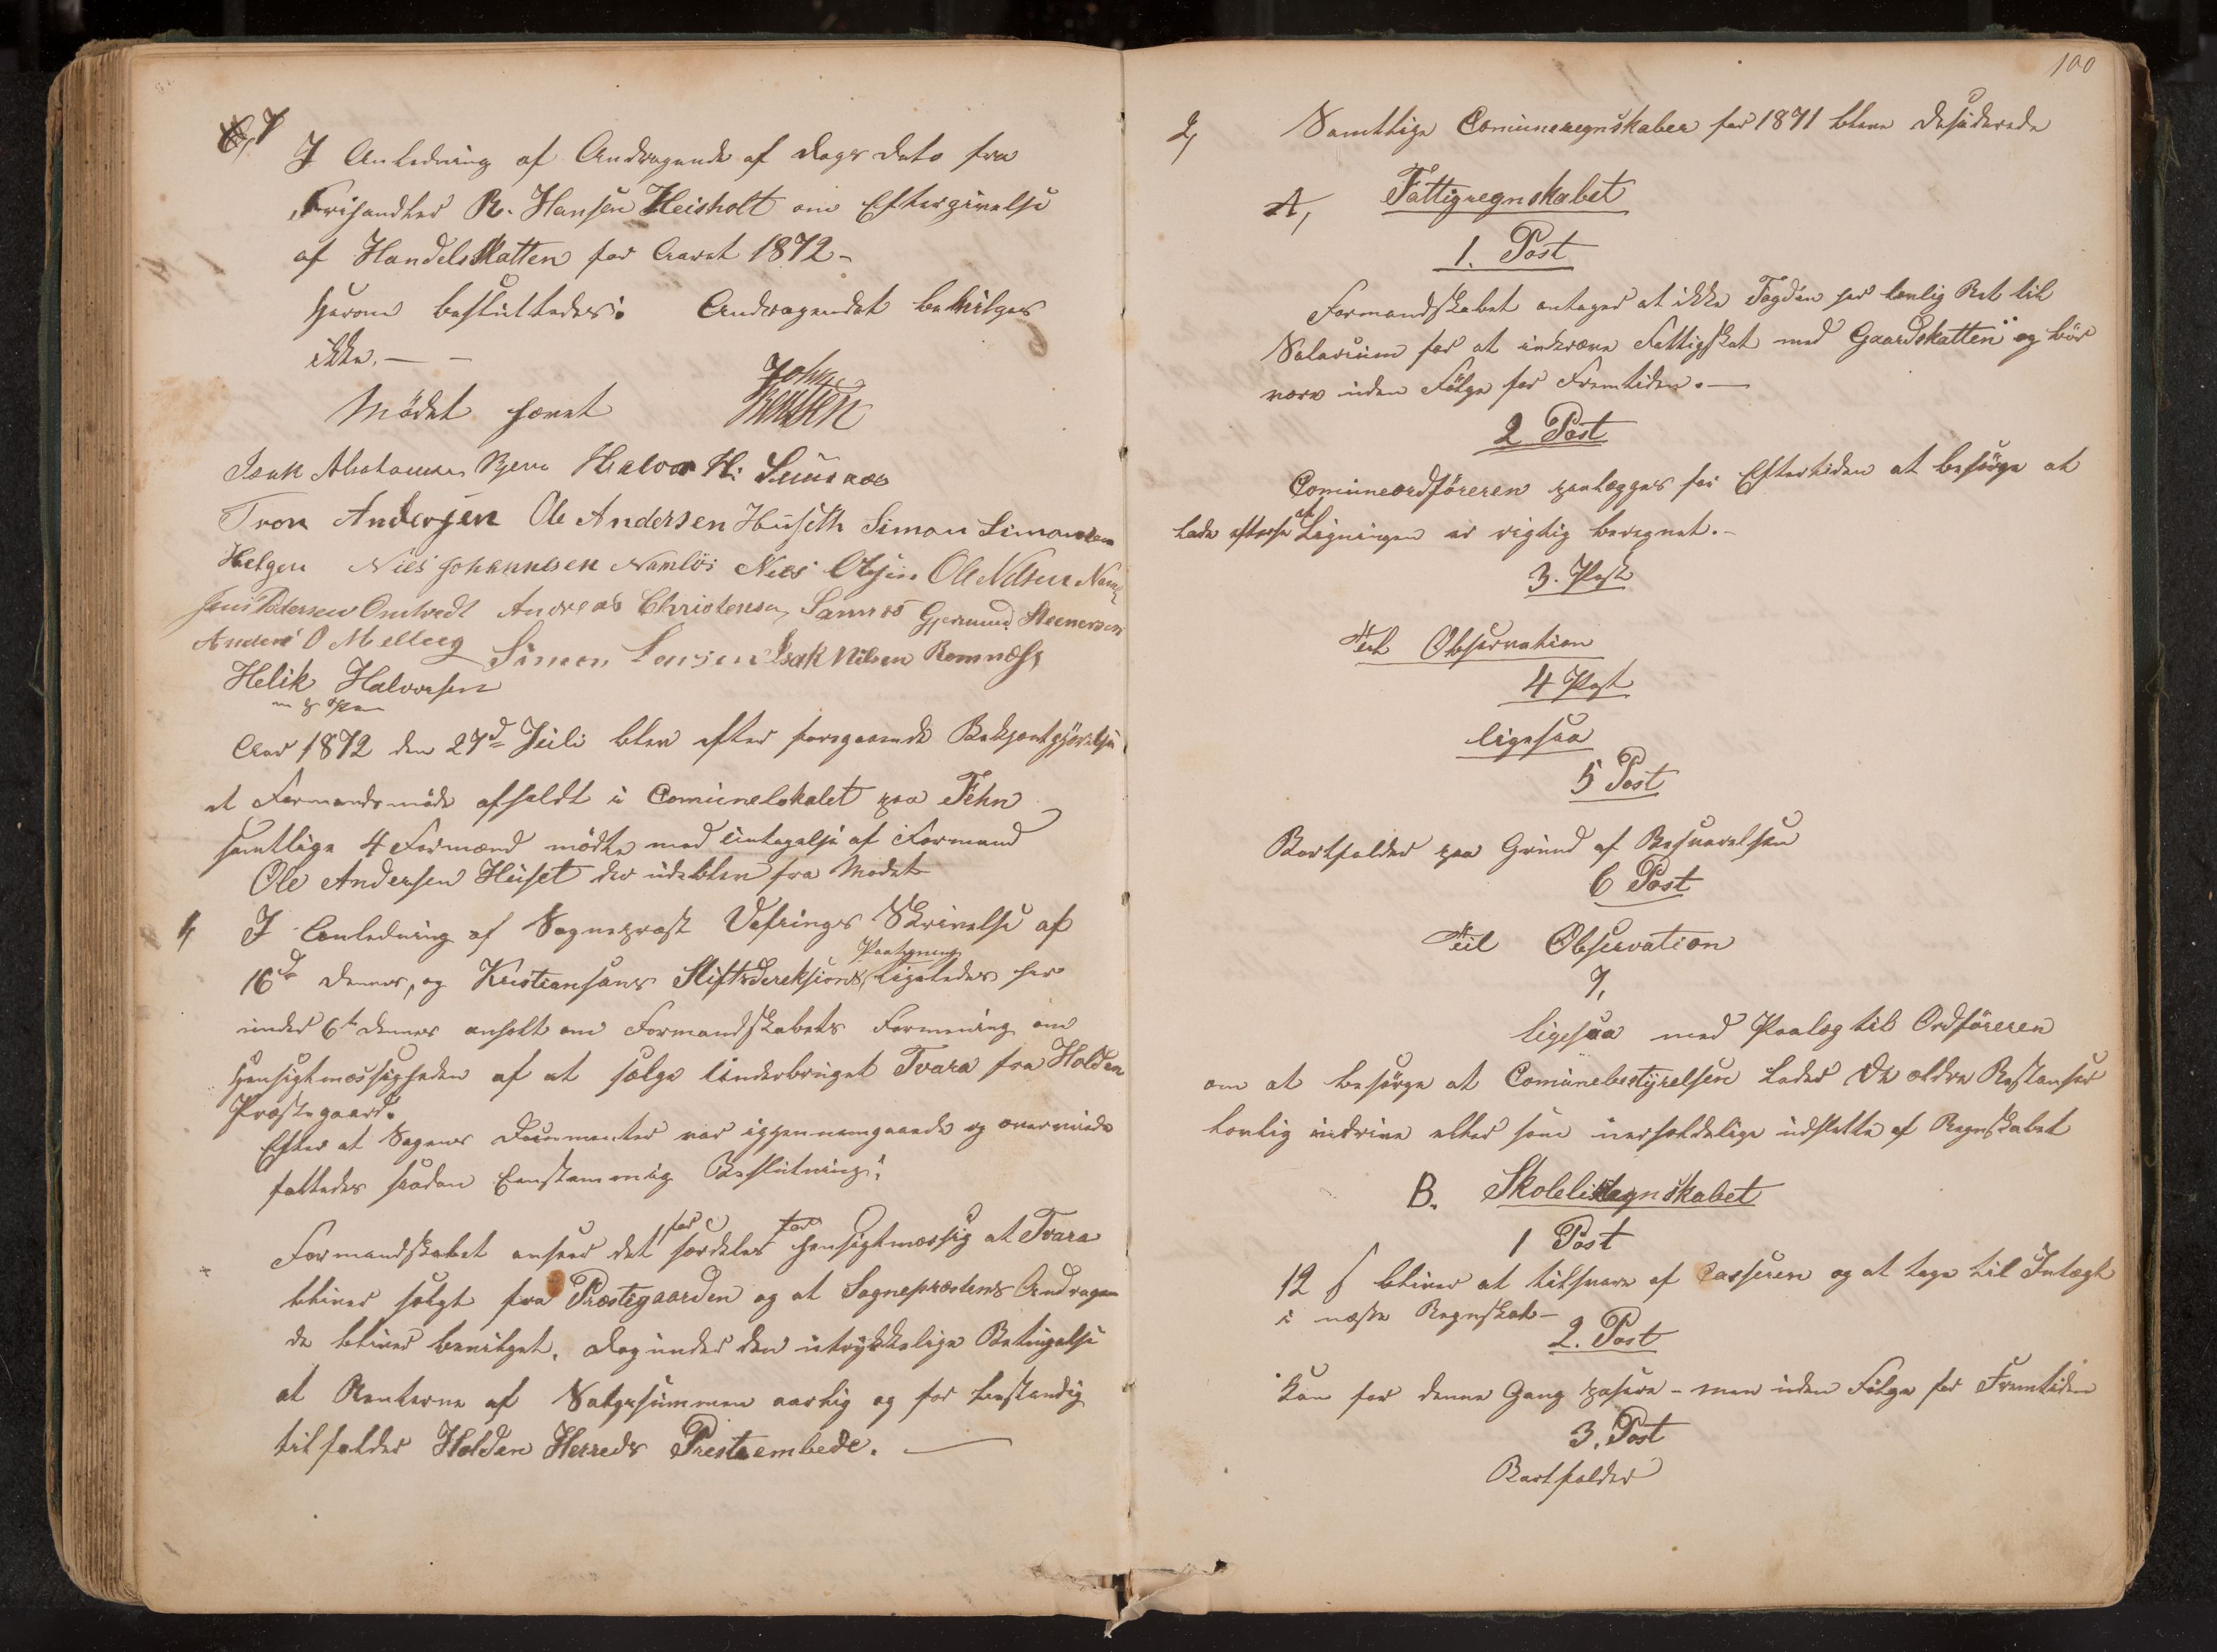 7
I Anledning af Andragende af Dags Dato fra
Frihandler R. Hansen Heisholt om Eftergivelse
af Handelsskatten for Aaret 1872 -
Herom besluttedes: Andragendet bevilges
ikke. — -
Mödet hævet John
Isak Abrahamsen Bjerva Halvor H:
Tron Andersen Ole Andersen Huseth Simon Simonsen
Helgen Niels Johannesen Namlös Niels Olsen Ole Nelsen
Jens Pedersen Omtvedt Andreas Christensen Sannes Gjermund Steenersen
Anders O Melleeg Simon Isak Nilsen Romnæss
Helik Halvorsen
m f Pen
Aar 1872 den 27d Juli blev efter foregaaende Bekjentgjörelse
et Formandsmöde afholdt i Comunelokalet paa Fehn
samtlige 4 Formænd mödte med Untagelse af Formand
Ole Andersen Huset der udeblev fra Mödet
1, I Anledning af Sogneprest Vefrings Skrivelse af
16de dennes, og Kristiansans Stiftsdireksions Paategning ligeledes her
under 6te dennes anholdt om Formandskabets Formening om
Hensigtmæssigheden af at sælge Underbruget Tvara fra Holden
Præstegaard.
Efter at Sagens Documenter var igjennemgaaede og overveiede
fattedes saadan Eenstemmig Beslutning:
Formandskabet anseer det for særdeles hensigtmæssig at Tvara
bliver solgt fra Præstegaarden og at Sognepræstens Andragen
de bliver bevilget. Dog under den utrykkelige Betingelse
at Renterne af Salgssummen aarlig og for bestandig
tilfalder Holden Herreds Presteembede. —
100
2, Samtlige Comuneregnskaber for 1871 bleve desiderede
A, Fattigregnskabet
1. Post
Formandskabet antager at ikke Fogden har lovlig Ret til
Salarium for at inkræve Fattigskat med Gaardskatten og bör
være uden Fölge for Fremtiden. —
2 Post
Comuneordföreren paalægges for Eftertiden at besörge at
lade efterse at Ligningen er rigtig beregnet. -
3. Post
Til Observation
4 Post
ligesaa
5 Post
Bortfalder paa Grund af Besvarelsen
6 Post
Til Observation
7,
ligesaa med Paalæg til Ordföreren
om at besörge at Comunebestyrelsen lader de ældre Restanser
lovlig inddrive eller som uerholdelige udslette af Regnskabet
B. Skoleregnskabet
1 Post
12 ß bliver at tilsvare af Casseren og at tage til Intægt
i næste Regnskab -
2. Post
Kan for denne Gang pasere - men uden Fölge for Fremtiden
3. Post
Bortfalder